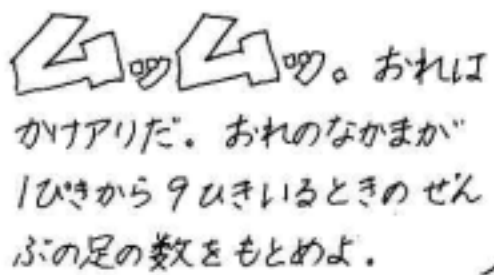 ムッムッ。おれは
かけアリだ。おれのなかまが
1ぴきから9ひきいるときのぜん
ぶの足の数をもとめよ.